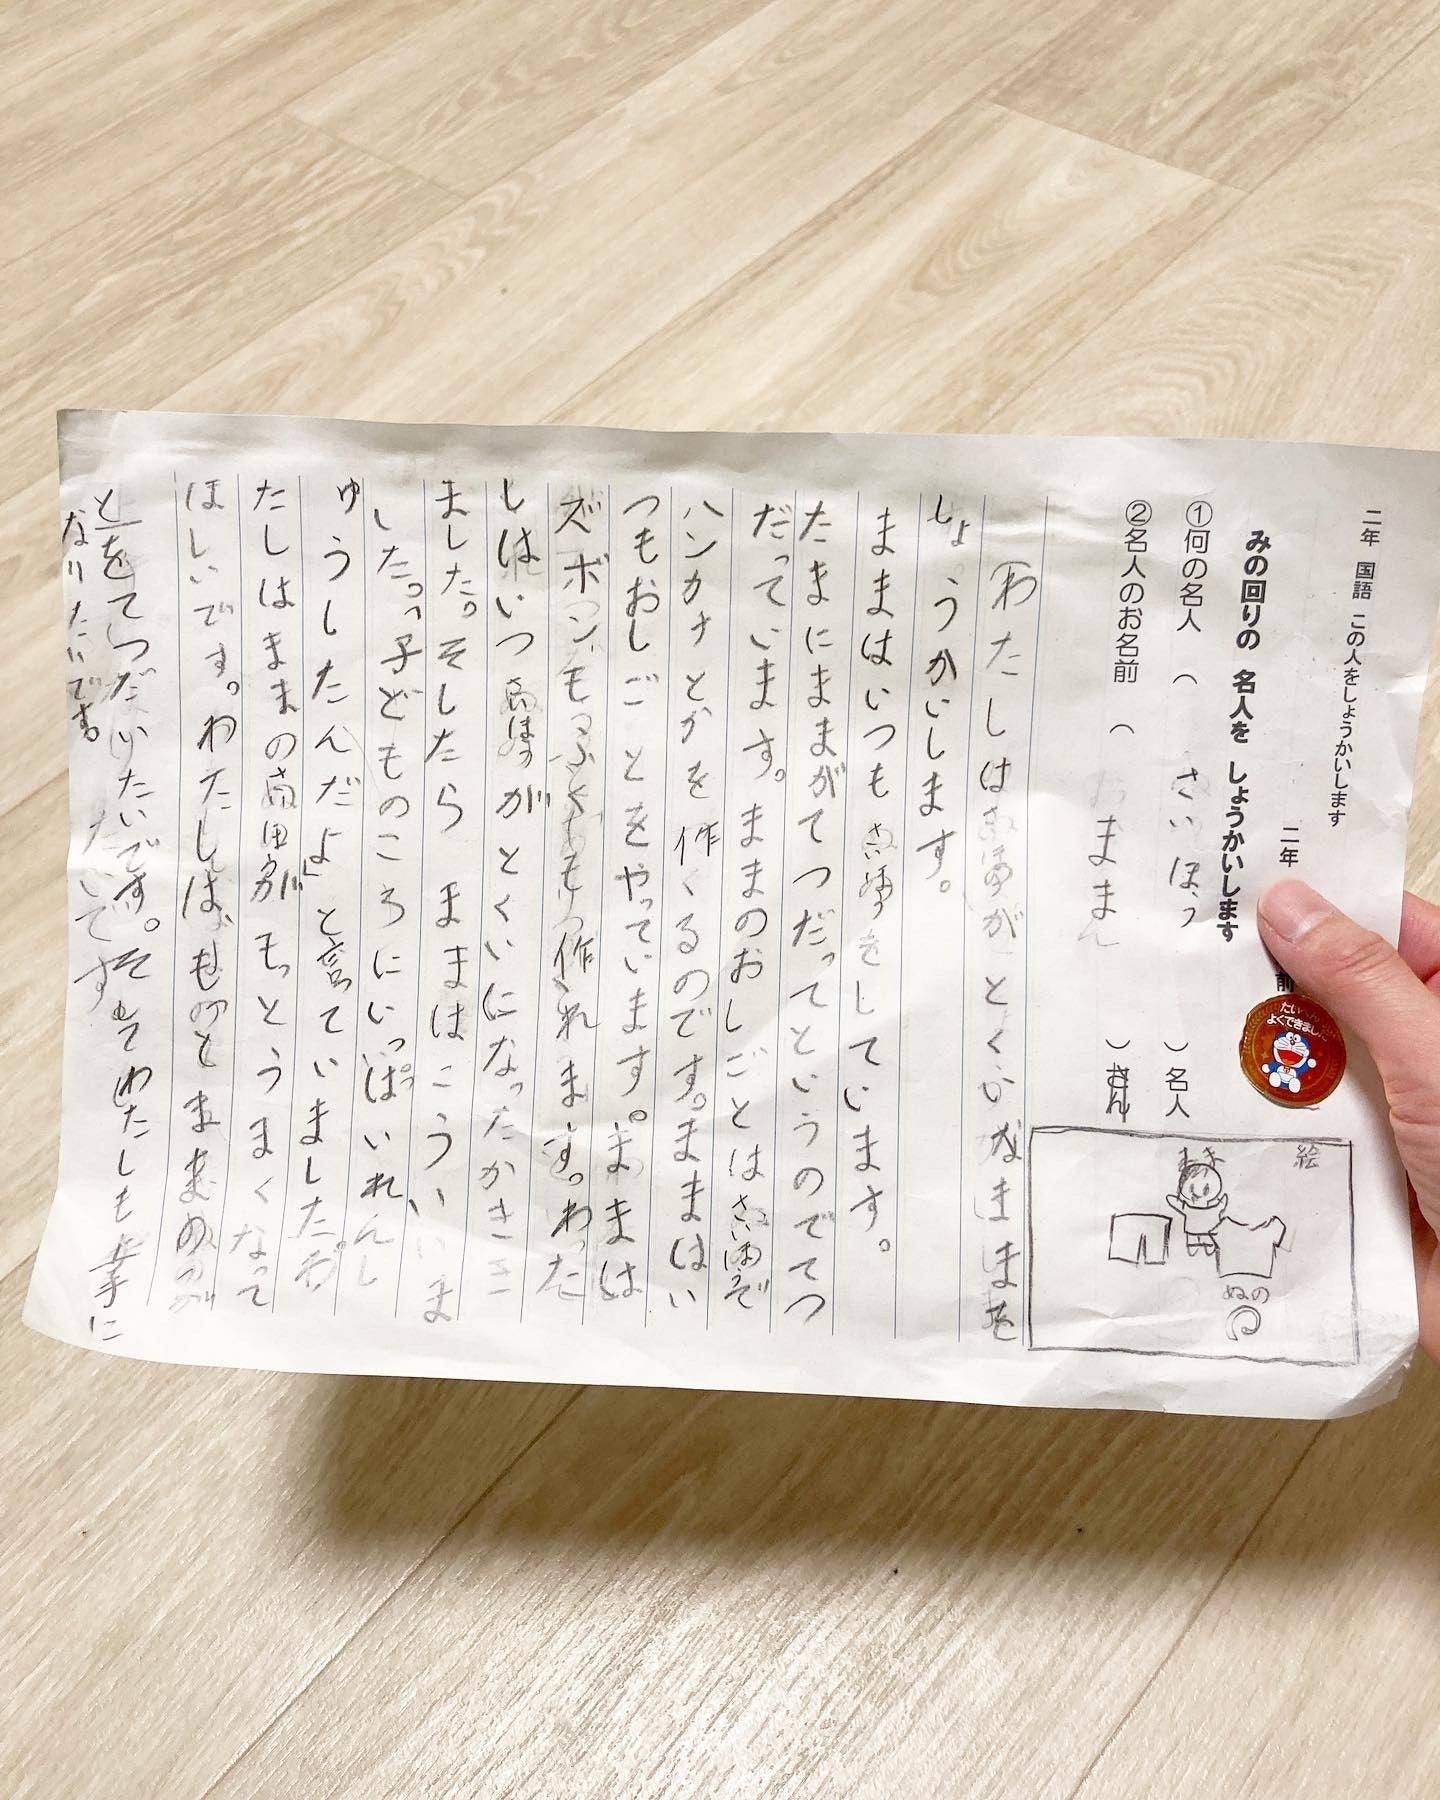 二年 国語 この人をしょうかいします
二年
前
みの回りの 名人を しょうかいします
①何の名人 ( さいほう )名人
②名人のお名前 ( おまま )さん
たいへん
よくできました
絵
まま
ぬの
わたしは さいほうが とくいな ままを
しょうかいします。
ままはいつも さいほうをしています。
たまにままがてつだってというのでてつ
だっています。ままのおしごとは さいほうで
ハンカチとかを作くるのです。ままはい
つもおしごとをやっています。ままは
ズボンもふくも作くれます。わた
しはいつ さいほうがとくいになったかきき
ました。そしたら ままは こういいま
した。「子どものころにいっぱいれんし
ゅうしたんだよ」と言っていました。わ
たしはままの さいほうが もっとうまくなって
ほしいです。わたしは、もっと ままの
ことをてつだいたいです。そしてわたしも上手に
なりたいです。